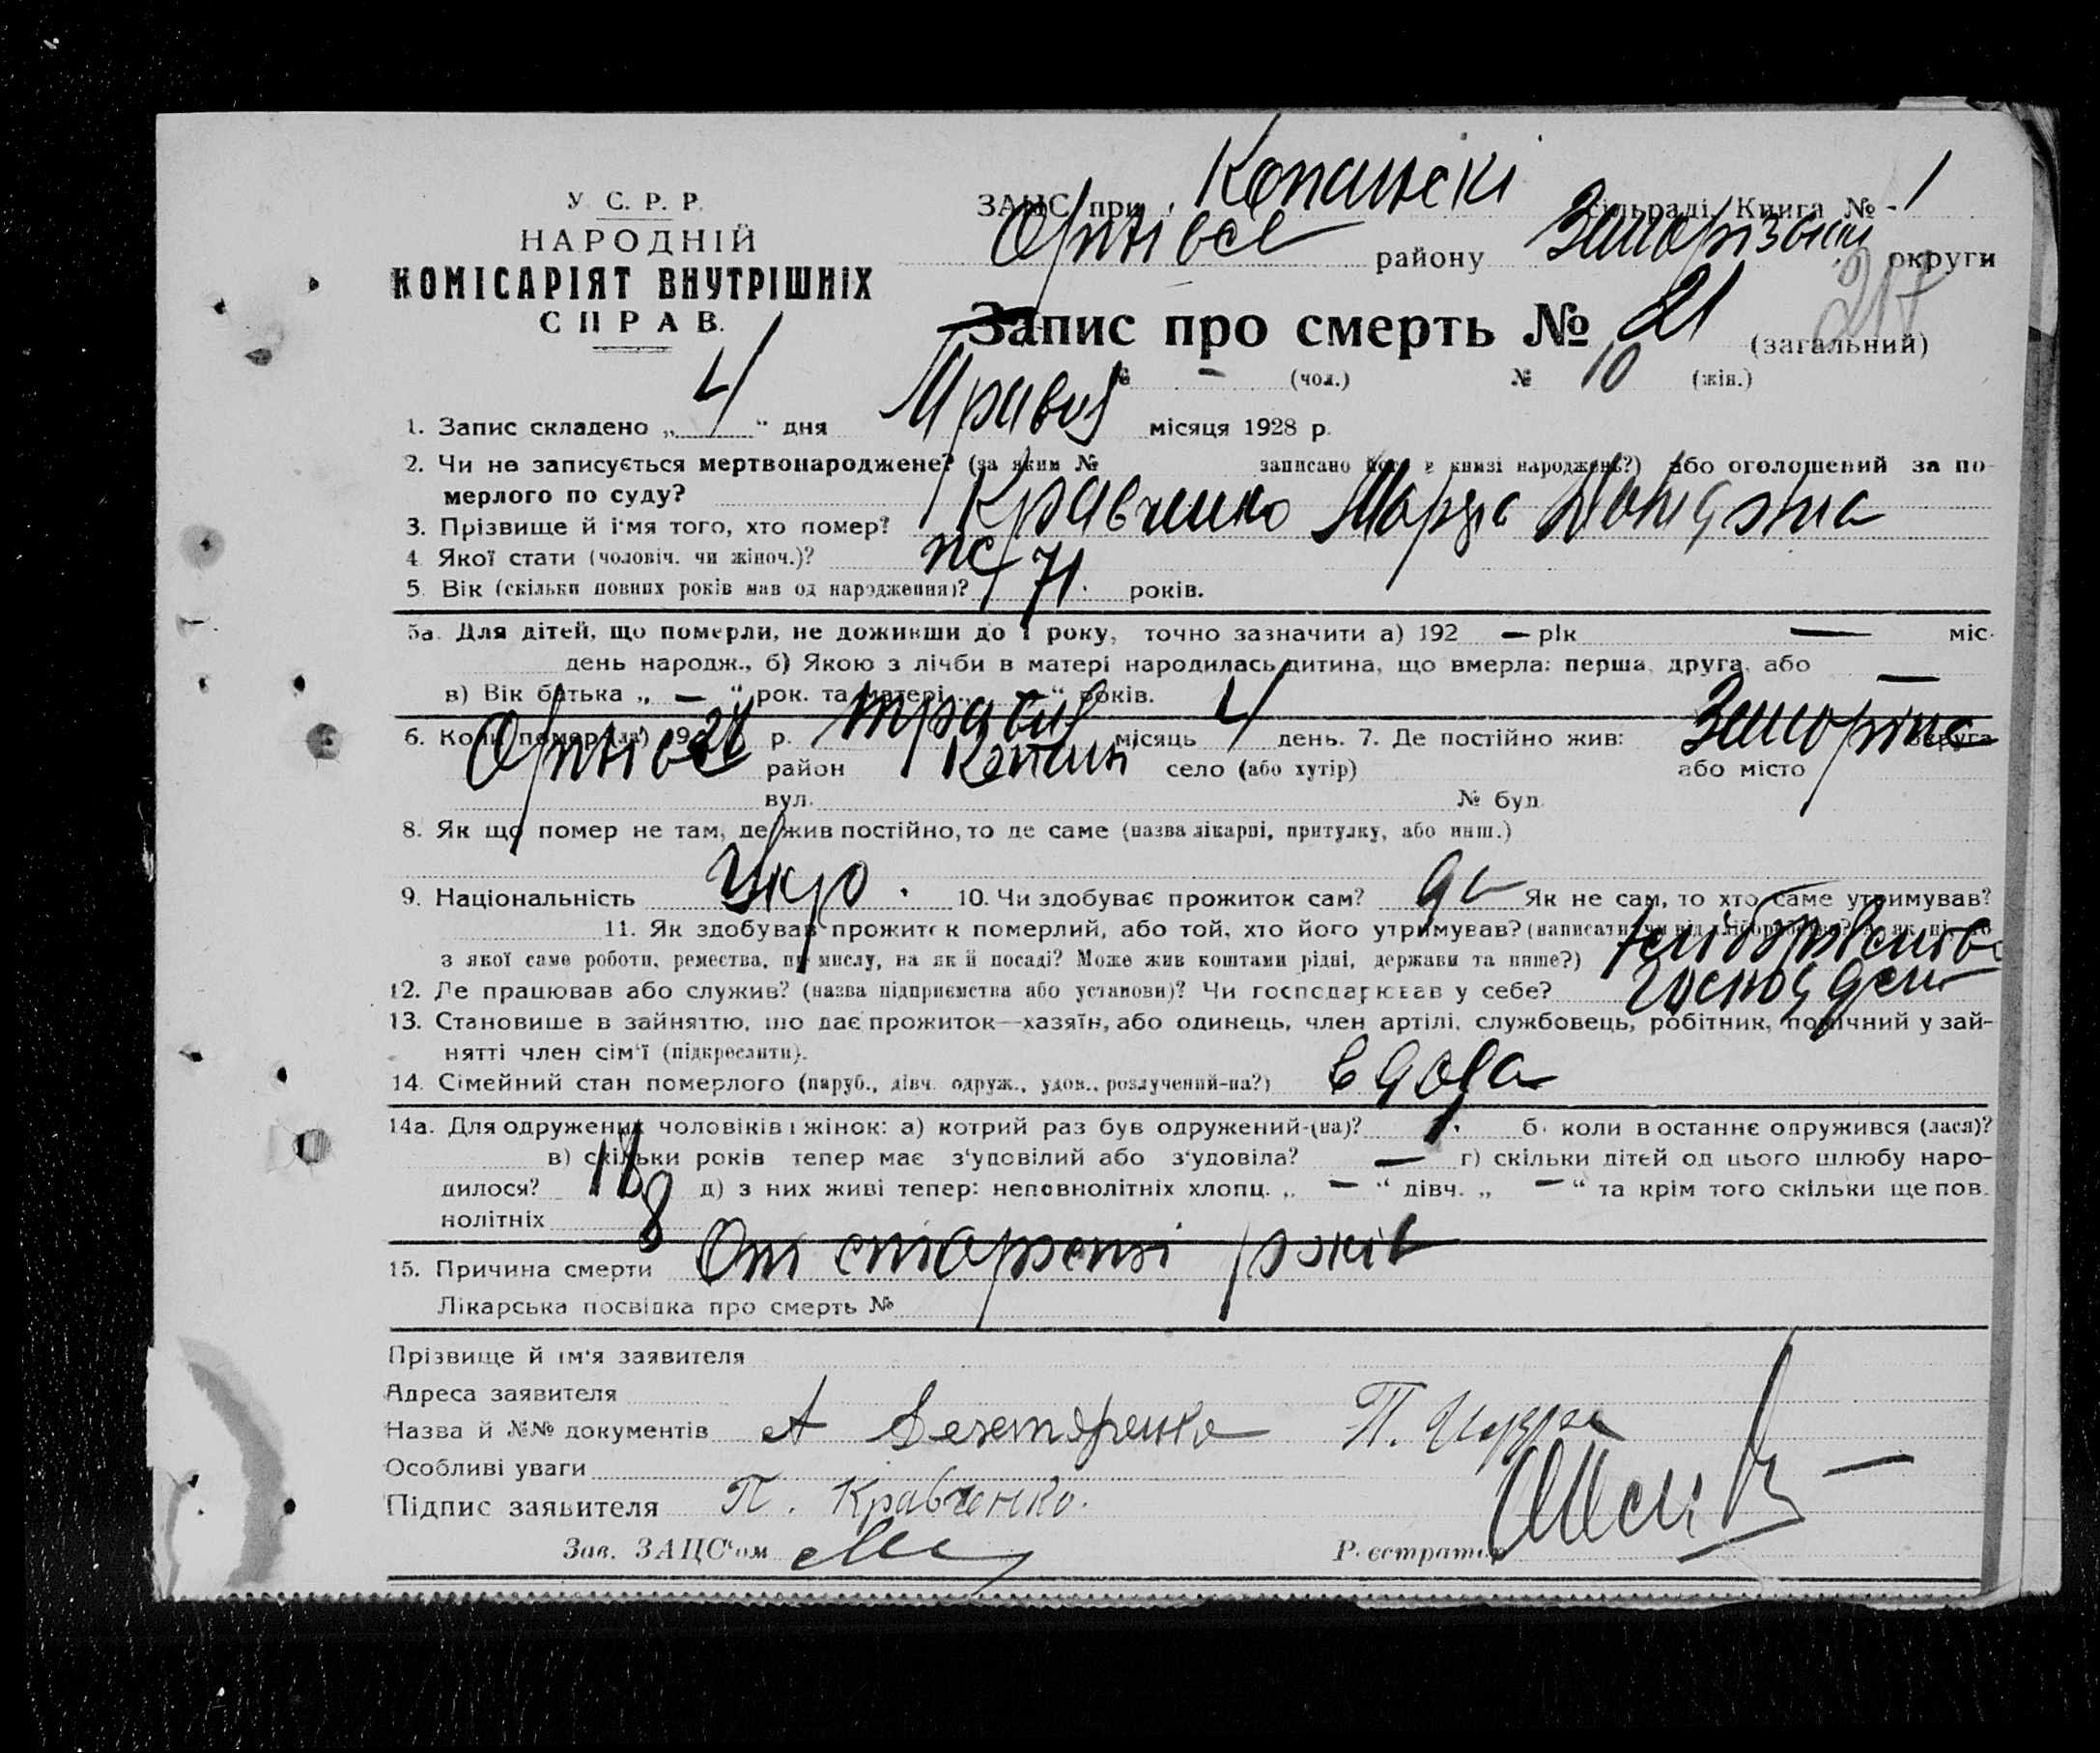 У С. Р. Р.
НАРОДНІЙ
КОМІСАРІЯТ ВНУТРІШНІХ
СПРАВ.
ЗАПС при Копанскі сільраді Книга № 1
Оріхівск району Запорізької округи
217
Запис про смерть № 21 (загальний)
№ - (чол.) № 10 (жін.)
1. Запис складено „ 4 “ дня Травня місяця 1928 р.
2. Чи не записується мертвонароджене? (за яким № записано його в книзі народжень?) або оголошений за по-
мерлого по суду?
3. Прізвище й і'мя того, хто помер? Кравченко Марфа
4 Якої стати (чоловіч. чи жіноч.)? ж
5. Вік (скільки повних років мав од народження)? 71 років.
5а. Для дітей, що померли, не доживши до 1 року, точно зазначити а) 192 — рік — міс.
день народж., б) Якою з лічби в матері народилась дитина, що вмерла: перша, друга, або —
в) Вік батька „ — “ рок. та матері „ “ років.
6. Коли помер (ла) 1928 р. травня місяць 4 день. 7. Де постійно жив: округа
Оріхівс район Копані село (або хутір) або місто
вул. № буд.
8. Як що помер не там, де жив постійно, то де саме (назва лікарні, притулку, або инш.)
9. Національність Укр. 10. Чи здобуває прожиток сам? да Як не сам, то хто саме утримував?
11. Як здобував прожиток померлий, або той, хто його утримував? (написати чи від хліборобства? А як ні, то
з якої саме роботи, ремества, промислу, на якій посаді? Може жив коштами рідні, держави та инше?)
12. Де працював або служив? (назва підприємства або установи)? Чи господарював у себе?
13. Становище в зайняттю, що дає прожиток—хазяїн, або одинець, член артілі, службовець, робітник, помічний у зай-
нятті член сім'ї (підкреслити).
14. Сімейний стан померлого (паруб., дівч. одруж., удов., розлучений-на?) вдова
14а. Для одружених чоловіків і жінок: а) котрий раз був одружений-(на)? 1. б. коли востаннє одружився (лася)?
в) скільки років тепер має з'удовілий або з'удовіла? — г) скільки дітей од цього шлюбу наро-
дилося? 18 д) з них живі тепер: неповнолітніх хлопц. „ — “ дівч. „ — “ та крім того скільки ще пов.
нолітніх 8
15. Причина смерти От старості років
Лікарська посвідка про смерть №
Прізвище й ім'я заявителя
Адреса заявителя
Назва й №№ документів А Дехтяренко П.
Особливі уваги
Підпис заявителя П. Кравченко.
Зав. ЗАЦС'ом Реєстратор